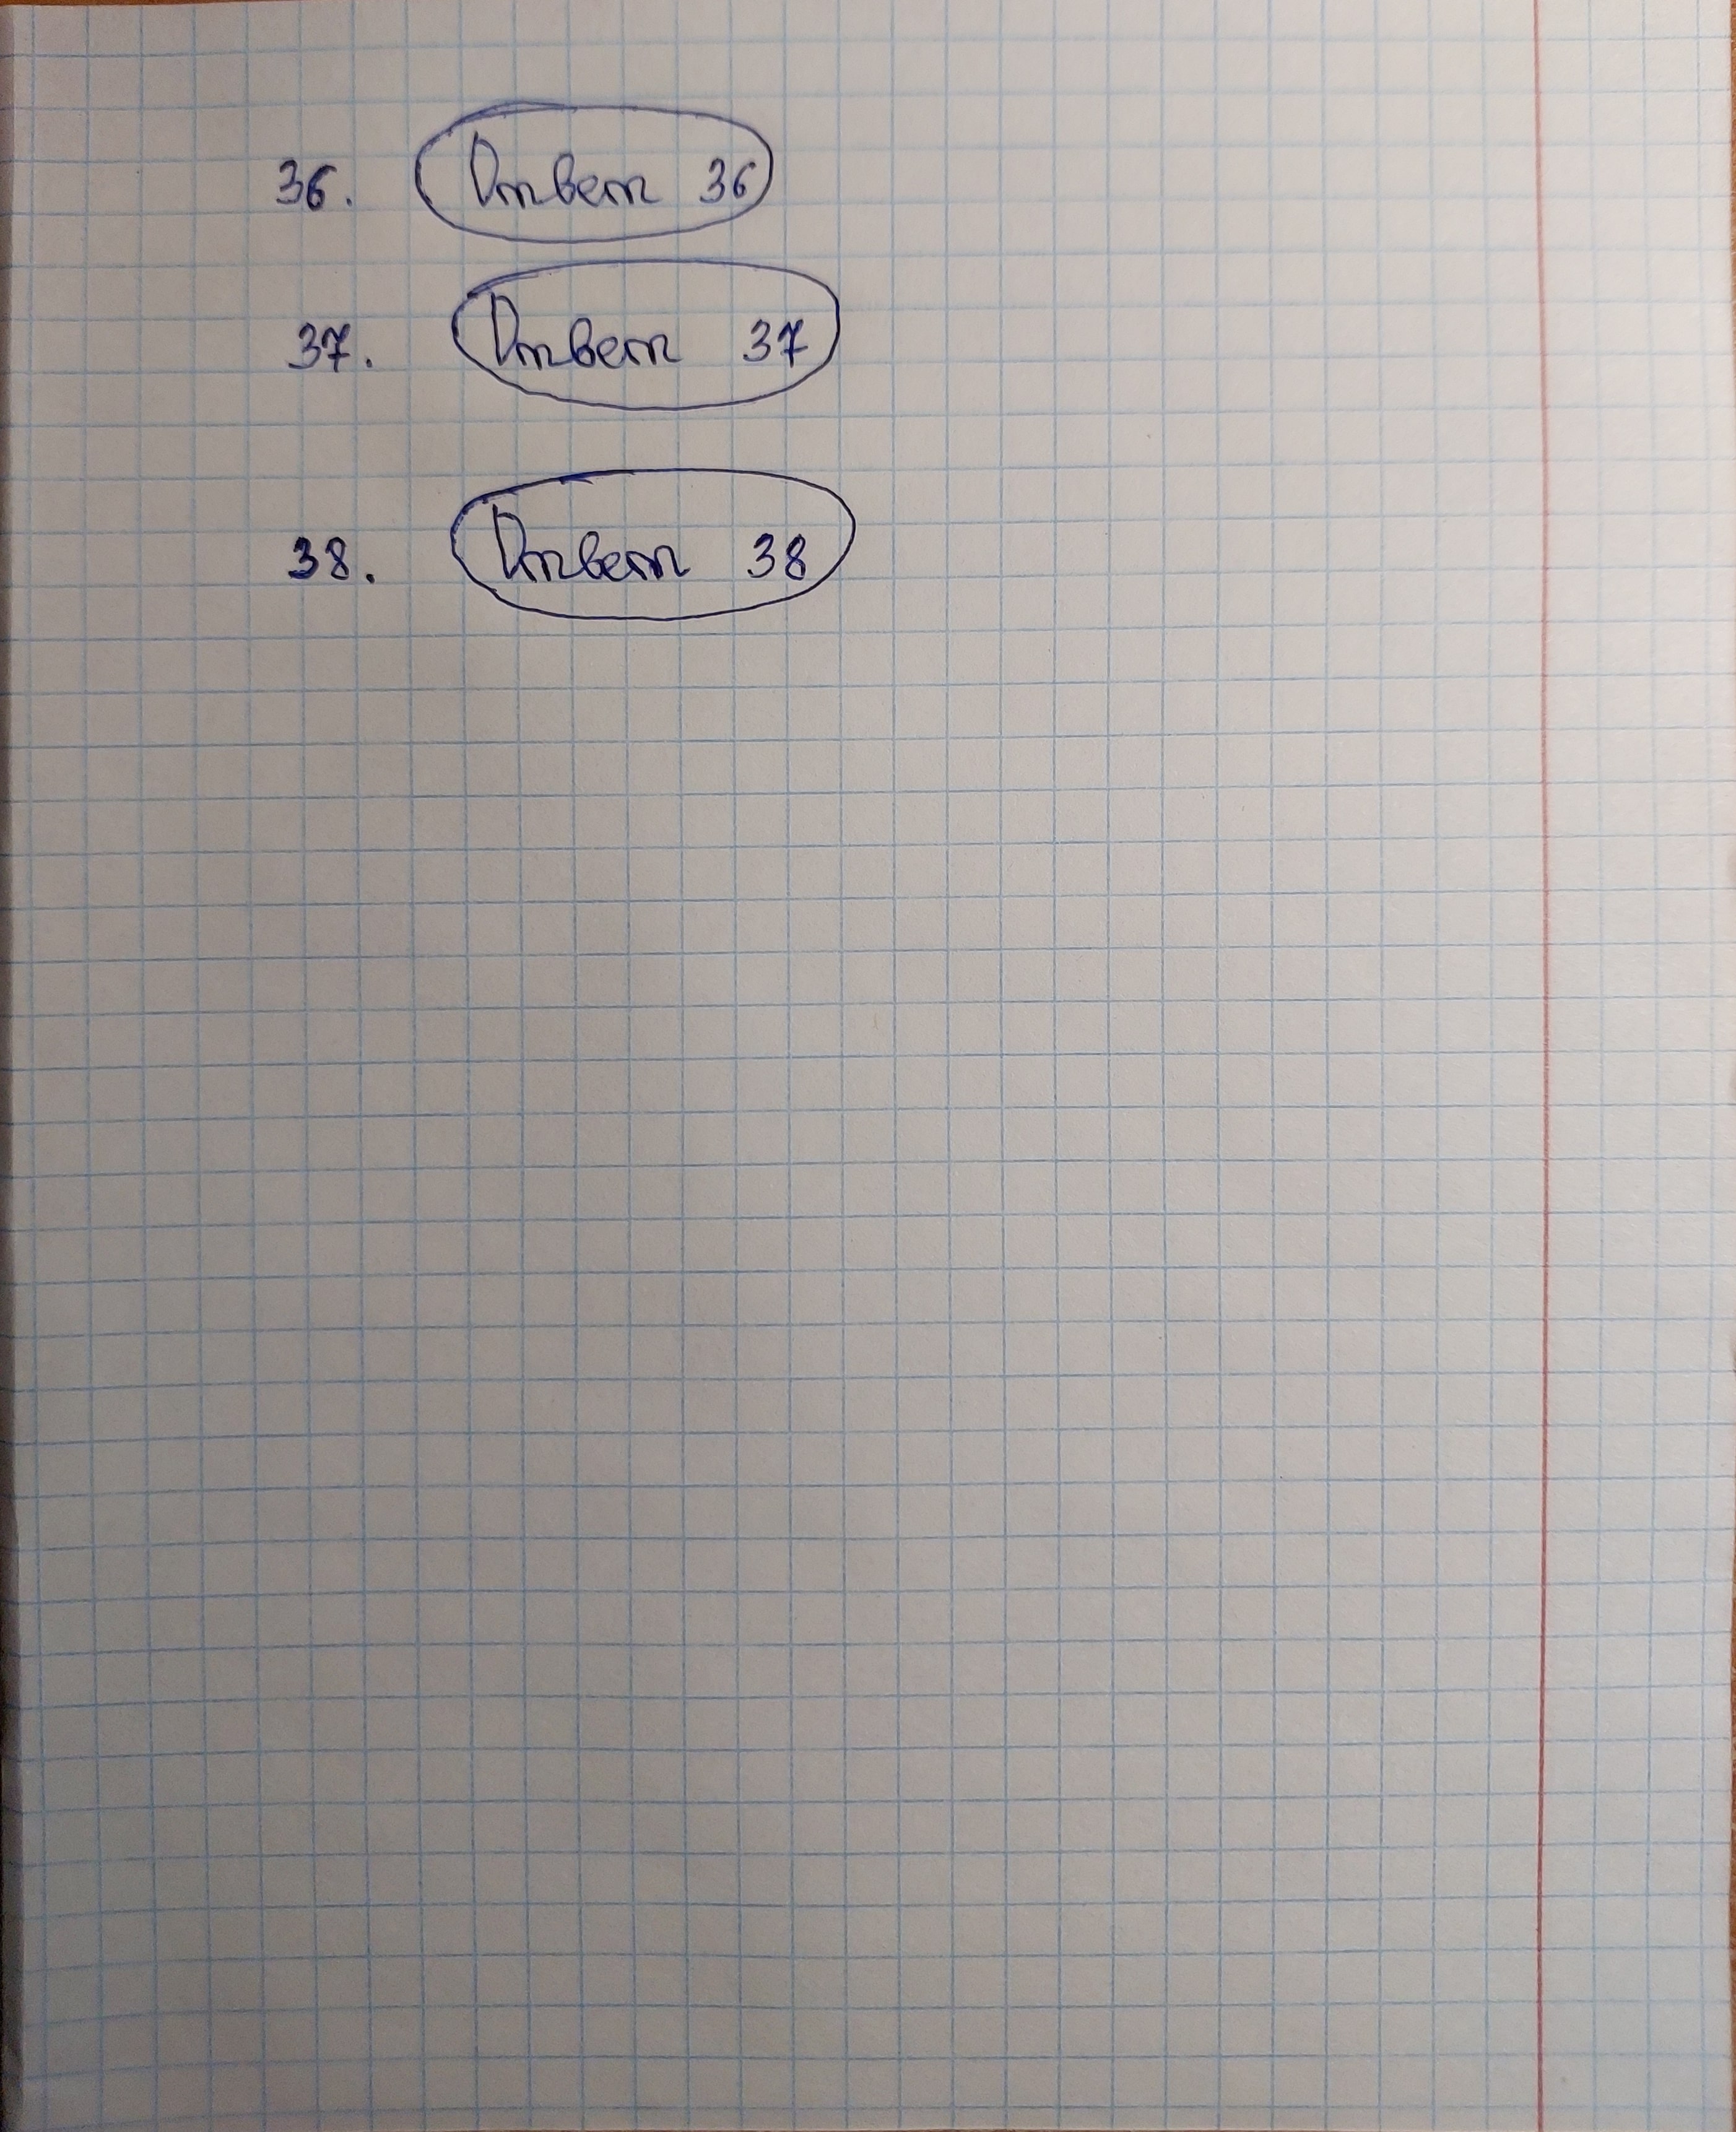 36. Ответ 36
37. Ответ 37
38. Ответ 38